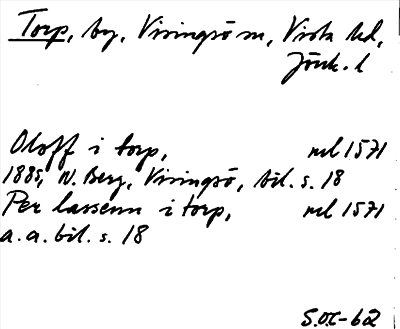 Torp, by, Visingsö sn, Vista hd,
Jönk. l
Oloff i torp, ml 1571
1885, N. Berg, Visingsö, bil. s. 18
Per lassenn i torp, ml 1571
a. a. bil. s. 18
S.O.-62